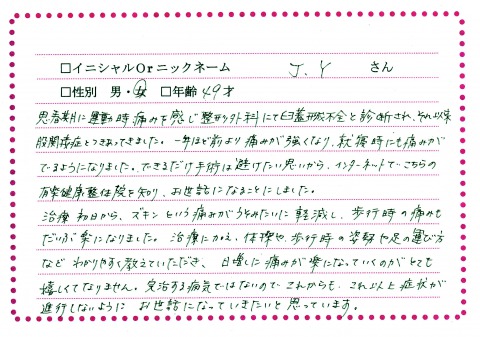 □イニシャルOrニックネーム J.Y さん
□性別 男・女 □年齢 49才
思春期に運動時痛みを感じ整形外科にて臼蓋形成不全と診断され、それ以来
股関節症とつきあってきました。一年ほど前より痛みが強くなり、就寝時にも痛みが
でるようになりました。できるだけ手術は避けたい思いから、インターネットでこちらの
健康整体院を知り、お世話になることにしました。
治療初日から、ズキンという痛みがうそみたいに軽減し、歩行時の痛みも
だいぶ楽になりました。治療に加え、体操や歩行時の姿勢や足の運び方
など わかりやすく教えていただき、日増しに痛みが楽になっていくのがとても
嬉しくてなりません。完治する病気ではないので これからも、これ以上症状が
進行しないように お世話になっていきたいと思っています。